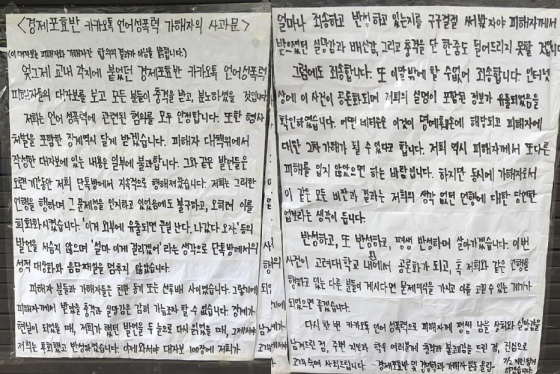 <경제포효반 카카오톡 언어성폭력 가해자의 사과문>
(이 대자보는 피해자와 가해자간 합의의 결과가 아님을 밝힙니다.)
엊그제 교내 각지에 붙었던 경제포효반 카카오톡 언어성폭력
피해자들의 대자보를 보고 모든 분들이 충격을 받고, 분노하였을 것입니다
저희는 언어 성폭력에 관련된 혐의를 모두 인정합니다. 또한 형사
처벌을 포함한 징계역시 달게 받겠습니다. 피해자 대책위에서
작성한 대자보에 있는 내용은 일부에 불과합니다. 그와 같은 발언들은
오랜 기간동안 저희 단톡방에서 지속적으로 행해져왔습니다. 저희는 그러한
언행을 행하며 그 문제점을 인지하고 있었음에도 불구하고, 오히려 이를
희화화 시켰습니다. '이게 외부에 유출되면 큰일 난다. 나갔다 오자' 등의
발언을 서슴지 않으며 '설마 이게 걸리겠어' 라는 생각으로 단톡방에서의
성적 대상화와 음담패설을 멈추지 않았습니다.
피해자 분들과 가해자들은 친한 동기 또는 선후배 사이였습니다. 그렇기에
피해자께서 받았을 충격과 실망감은 감히 가늠조차 할 수 없습니다. 경계가
현실이 되었을 때, 저희가 했던 발언을 두 눈으로 다시 읽었을 때, 그제서야
저희는 후회했고 반성하였습니다. 이제와서야 대자보 100장에 저희가
얼마나 죄송하고 반성하고 있는지를 구구절절 써 봤자야 피해자께서
받았었던 실망감과 배신감, 그리고 충격을 단 한줌도 덜어드리지 못할 것입니다
그럼에도 죄송합니다. 또 이말밖에 할 수 없어 죄송합니다. 인터넷
상에 이 사건이 공론화되며 저희의 실명이 포함된 정보가 유출되었음을
확인하였습니다. 어떤 네티즌은 이것이 명예훼손에 해당되고 피해자에
대한 2차 가해가 될 수 있다고 합니다. 저희 역시 피해자께서 또다른
피해를 입지 않았으면 하는 바람입니다. 하지만 동시에 가해자로서
이 같은 모든 비난과 결과는 저희의 생각 없던 언행에 대한 당연한
업보라는 생각이 듭니다.
반성하고, 또 반성하고, 평생 반성하며 살아가겠습니다. 이번
사건이 고려대학교 내에서 공론화가 되고, 혹 저희와 같은 언행을
행하고 있는 다른 분들이 계시다면 문제의식을 가지고 이를 고칠 수 있는 계기가
되었으면 좋겠습니다.
다시 한 번 카카오톡 언어성폭력으로 피해자께 평생 남을 상처와 실망감을
남겨드린 점, 주변 지인과 학우 여러분께 충격과 불쾌감을 드린 점, 진심으로
고개숙여 사죄드립니다